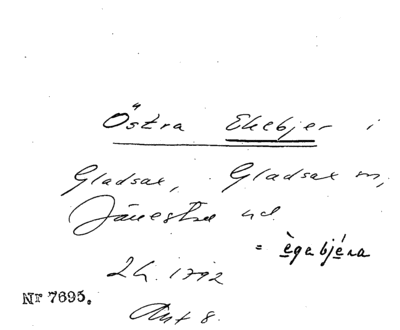 Östra Ekebjer i
Gladsax, Gladsax sn,
Järrestad hd.
= ègabjéra
LG. 1792
Akt 8.
Nr 7695.